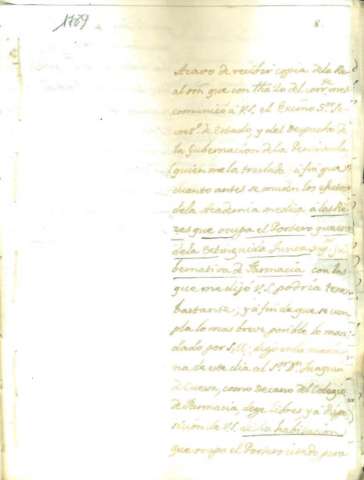 1789
8
Acavo de recibir copia de la Re
al orn que con fha 20 del corr.te mes
comunicó a V.S. el Exćmo S.or Se
cret.o de Estado, y del Despacho de
la Gubernacion de la Peninsula
(quien me la traslada) a fin que
cuanto antes se muden los efectos
de la Academia medica a las Pie
zas que ocupa el Portero que era
de la extinguida Junta Sup.or Gu
bernativa de Farmacia con las
que me dijo V.S. podria tener
bastante; y a fin de que se cum
pla lo mas breve posible lo man
dado por S.M. digo en la maña
na de este dia al S.or D.n Joaquin
de Cueva, como Decano del Colegio
de Farmacia, deje libres y a dispo
sicion de V.S. la habitacion
que ocupa el Portero citado para